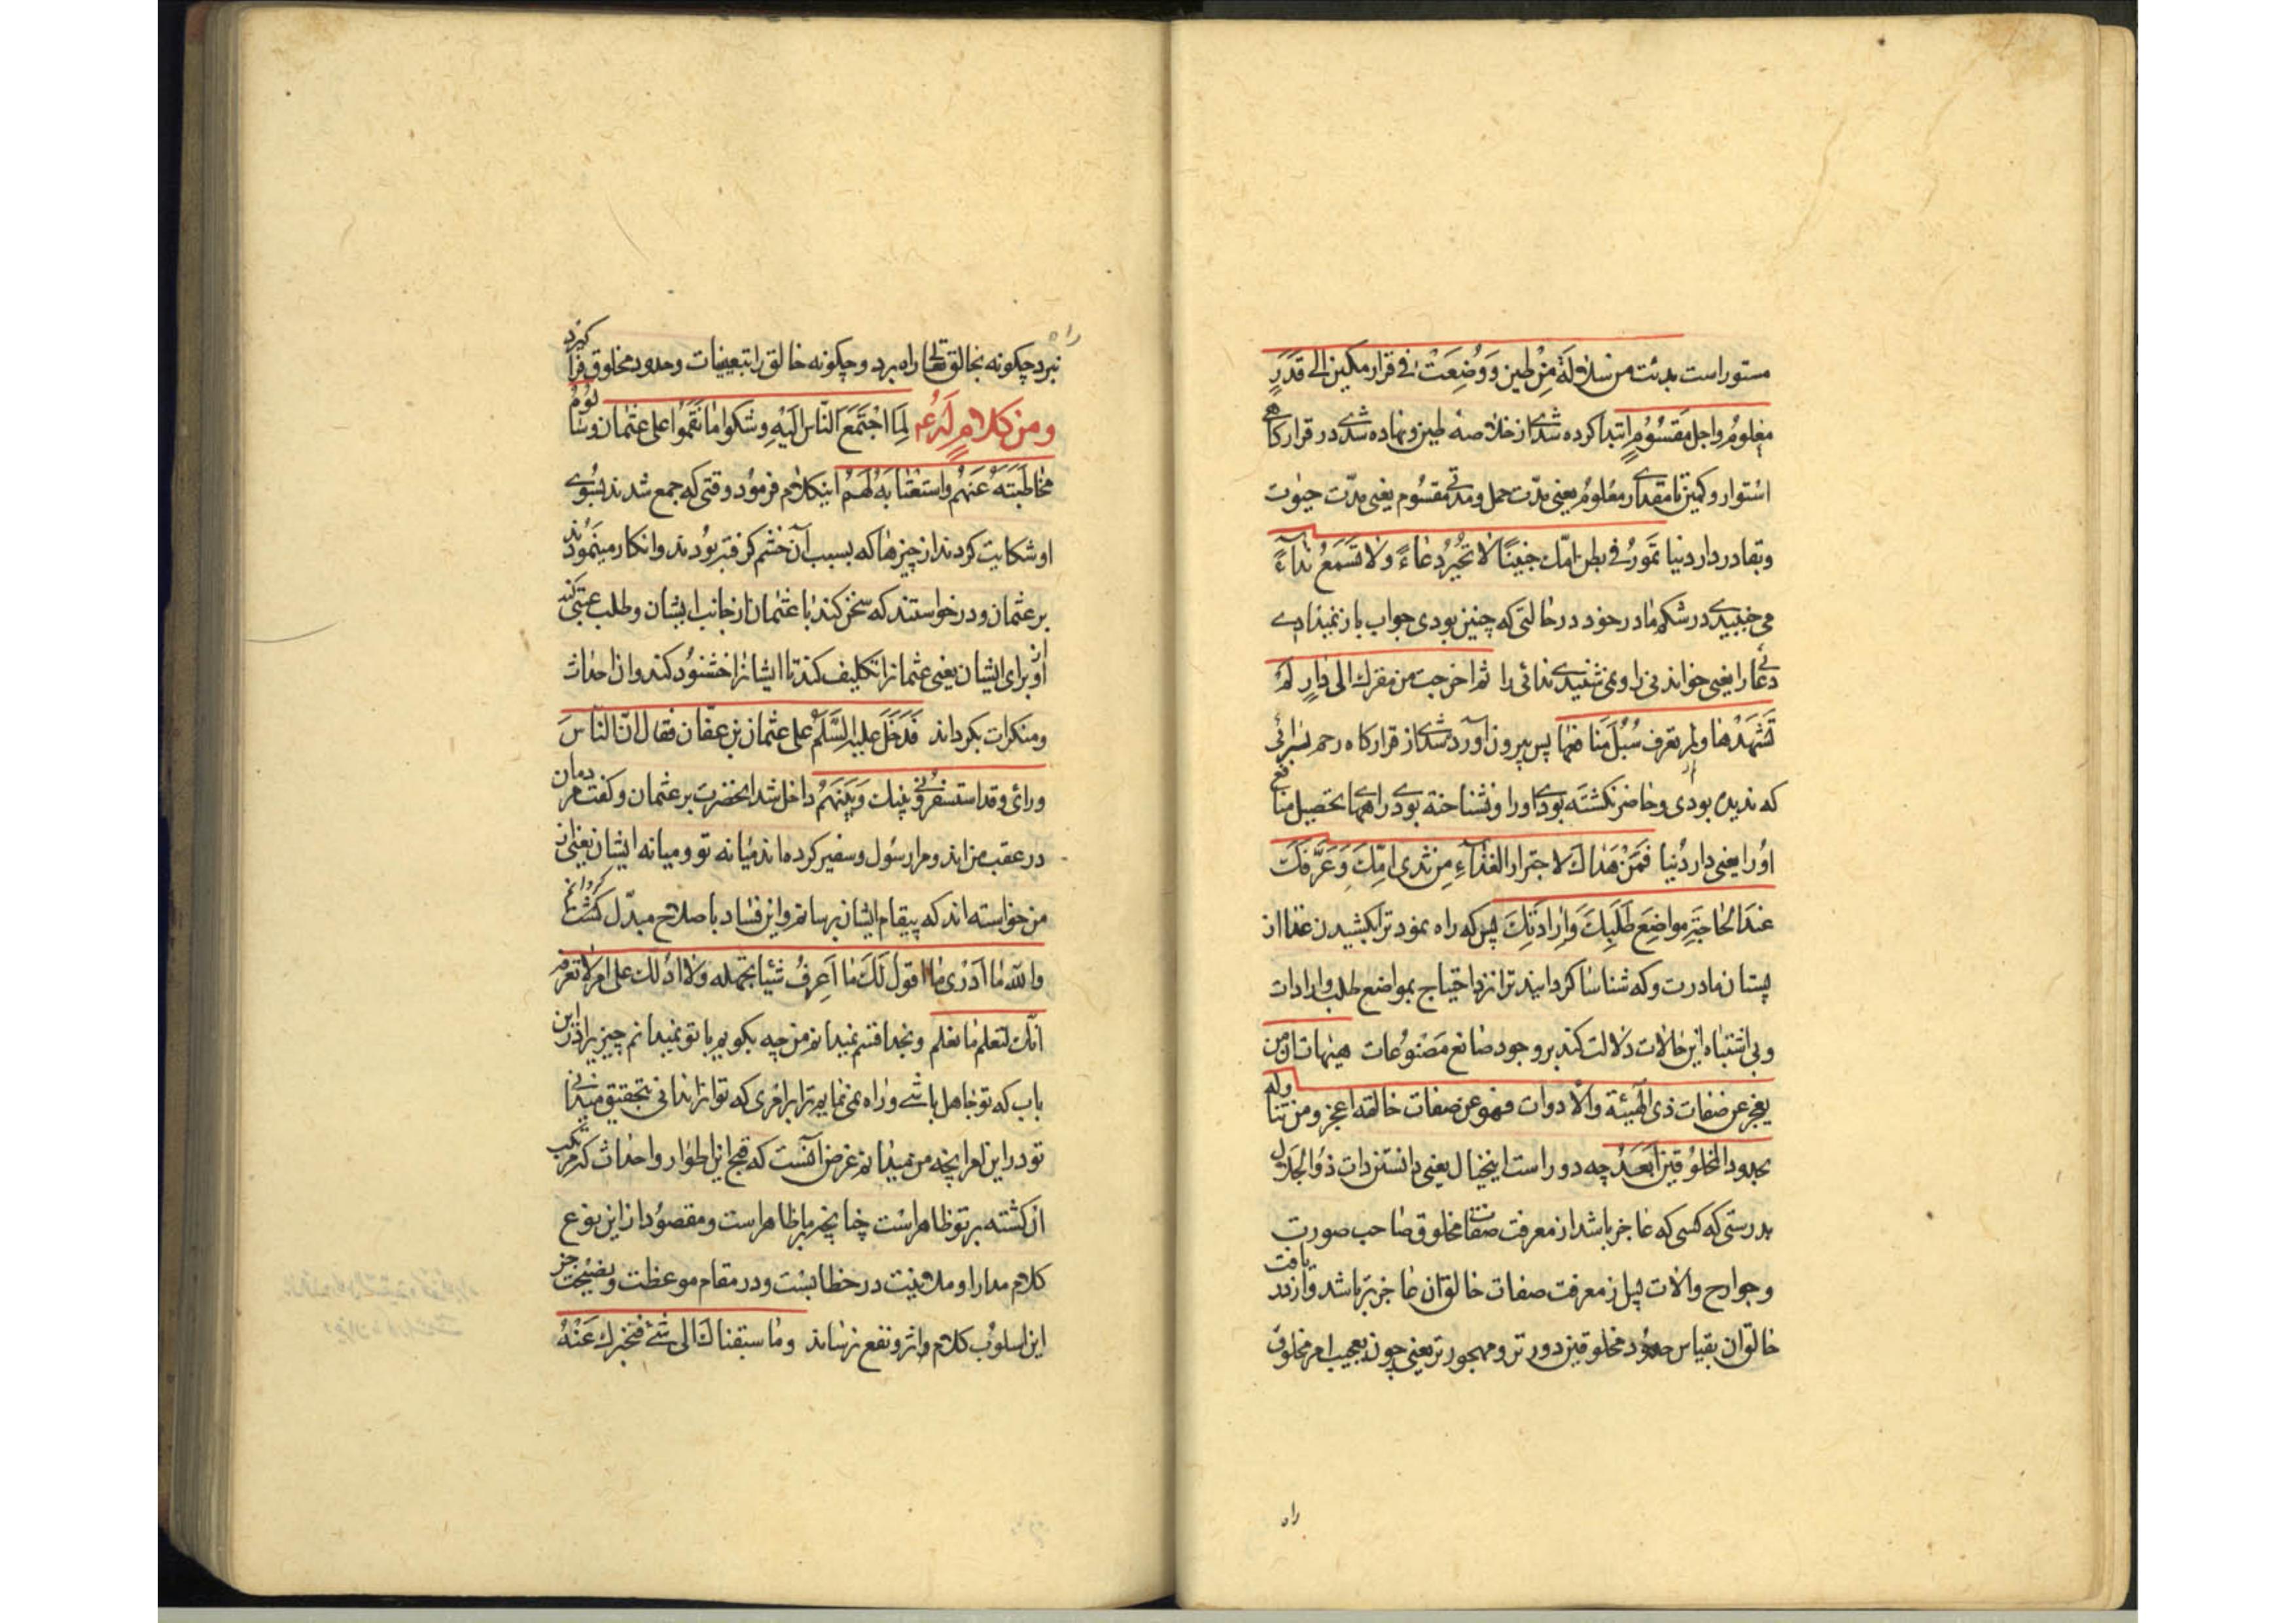 مستور است بدئت من سلالة مِنْ طین وَوُضِعَتْ فی قرار مکین الی قَدَرٍ
معلومٍ واجل مَقسُوُمٍ ابتدا کرده شدی از خلاصهٔ طین و نهاده شدی در قرارکاهی
استوار و کمین تا مقداری معلوم یعنی مدّت حمل و مدتی مقسُوم یعنی مدّت حیوت
و بقا در دار دنیا تَمَورُ فی بطن امّك جنینًا لا تُحیرُ دعاءً ولا تَسْمَعُ نداءً
می جنبیدی در شکم مادر خود در حالتی که چنین بودی جواب باز نمیدادی
دعائی را یعنی خواندنی را و نمی شنیدی ندائی را ثم اخرجت من مقرك الی دارٍ لَمْ
تَشهَدْها ولم تعرف سُبُلَ مَنافعها پس بیرون آورده شدی از قرارکاه رحم بسرائی
که ندیده بودی و حاضر نکشته بودی اورا و نشناخته بودی راههای تحصیل منافع
اوُرا یعنی دار دُنیا فَمَنْ هَداكَ لاجترار الغذآءِ مِنْ ثدی امّكَ وَعَرَّفَكَ
عندَ الحاجَةِ مواضِعَ طَلَبِكَ وَاِرادَتِكَ پس که راه نمود ترا بکشیدن غذا از
پستان مادرت و که شناسا کردانید ترا نزد احتیاج بمواضع طلب و ارادات
و بی اشتباه این حالات دلالت کند بر وجود صانع مَصْنوُعات هیهات ان من
یعجز عن صفات ذی الهیئة والادوات فهو عن صفات خالقه اعجز ومن تناوله
بحدود المخلوُقین اَبْعَدُ چه دور است اینخیال یعنی دانستن ذات ذوُالجَلال
بدرستی که کسی که عاجز باشد از معرفت صفات مخلوق صاحب صورت
و جوارح و الات پس از معرفت صفات خالق ان عاجزتر باشد و از دریافت
خالق ان بقیاس حدود مخلوقین دورتر و مهجورتر یعنی چون بعجیب امر مخلوق
راه
نبرد چکونه بخالق تعالی راه برد و چکونه خالق را بتعیینات و حدود مخلوق فرا کیرد
ومن کلامٍ لَهُ عم لَمّا اجْتَمَعَ النّاس اِلَیْهِ وشکوا مانَقَمَوُا علی عثمان وسَالوُمُ
مخاطَبَتَهُ عَنهُم واستعتابه لَهُمْ اینکلام فرموُد وقتی که جمع شدند بسُوی
او شکایت کردند از چیزهاکه بسبب آن خشم کرفته بوُدند و انکار مینموُدند
بر عثمان و درخواستند که سخن کند با عثمان از جانب ایشان و طلب عتبی کند
از او برای ایشان یعنی عثمانرا تکلیف کند تا ایشانرا خشنوُد کند و از احداث
و منکرات بکرداند فَدَخَلَ علیه السَّلم علی عثمان بن عفّان فقال انّ النّاسَ
ورائی وقد استسفروُنی بینك وَبَیْنَهُمْ داخل شد انحضرت بر عثمان و کفت مردمان
در عقب من اند و مرا رسُول و سفیر کرده اند میانه تو و میانه ایشان یعنی از
من خواسته اند که پیغام ایشان برسانم و این فساد با صلاح مبدّل کشته کردانم
والله ما اَدْری ما اقول لَكَ ما اَعرِفُ شیئا تجهله ولا ادُلّك علی امر لا تعرفه
انّك لتعلم ما نعلم و بخدا قسم نمیدانم من چه بکویم با تو نمیدانم چیزیرا در این
باب که تو جاهل باشی و راه نمی نمایم ترا بر امری که تو انرا ندانی بتحقیق میدانی
تو در این امر اپچه من میدانم غرض آنست که قبح این اطوار و احداث که مرتکب
ان کشته بر تو ظاهر است چنانچه بر ما ظاهر است و مقصوُد از این نوع
کلام مدارا و ملاینت در خطابست و در مقام موعظت و نصیحت جز
این اسلوُب کلام واثر و نفع نرساند وما سبقناك الی شیْ فنخبرك عَنْهُ